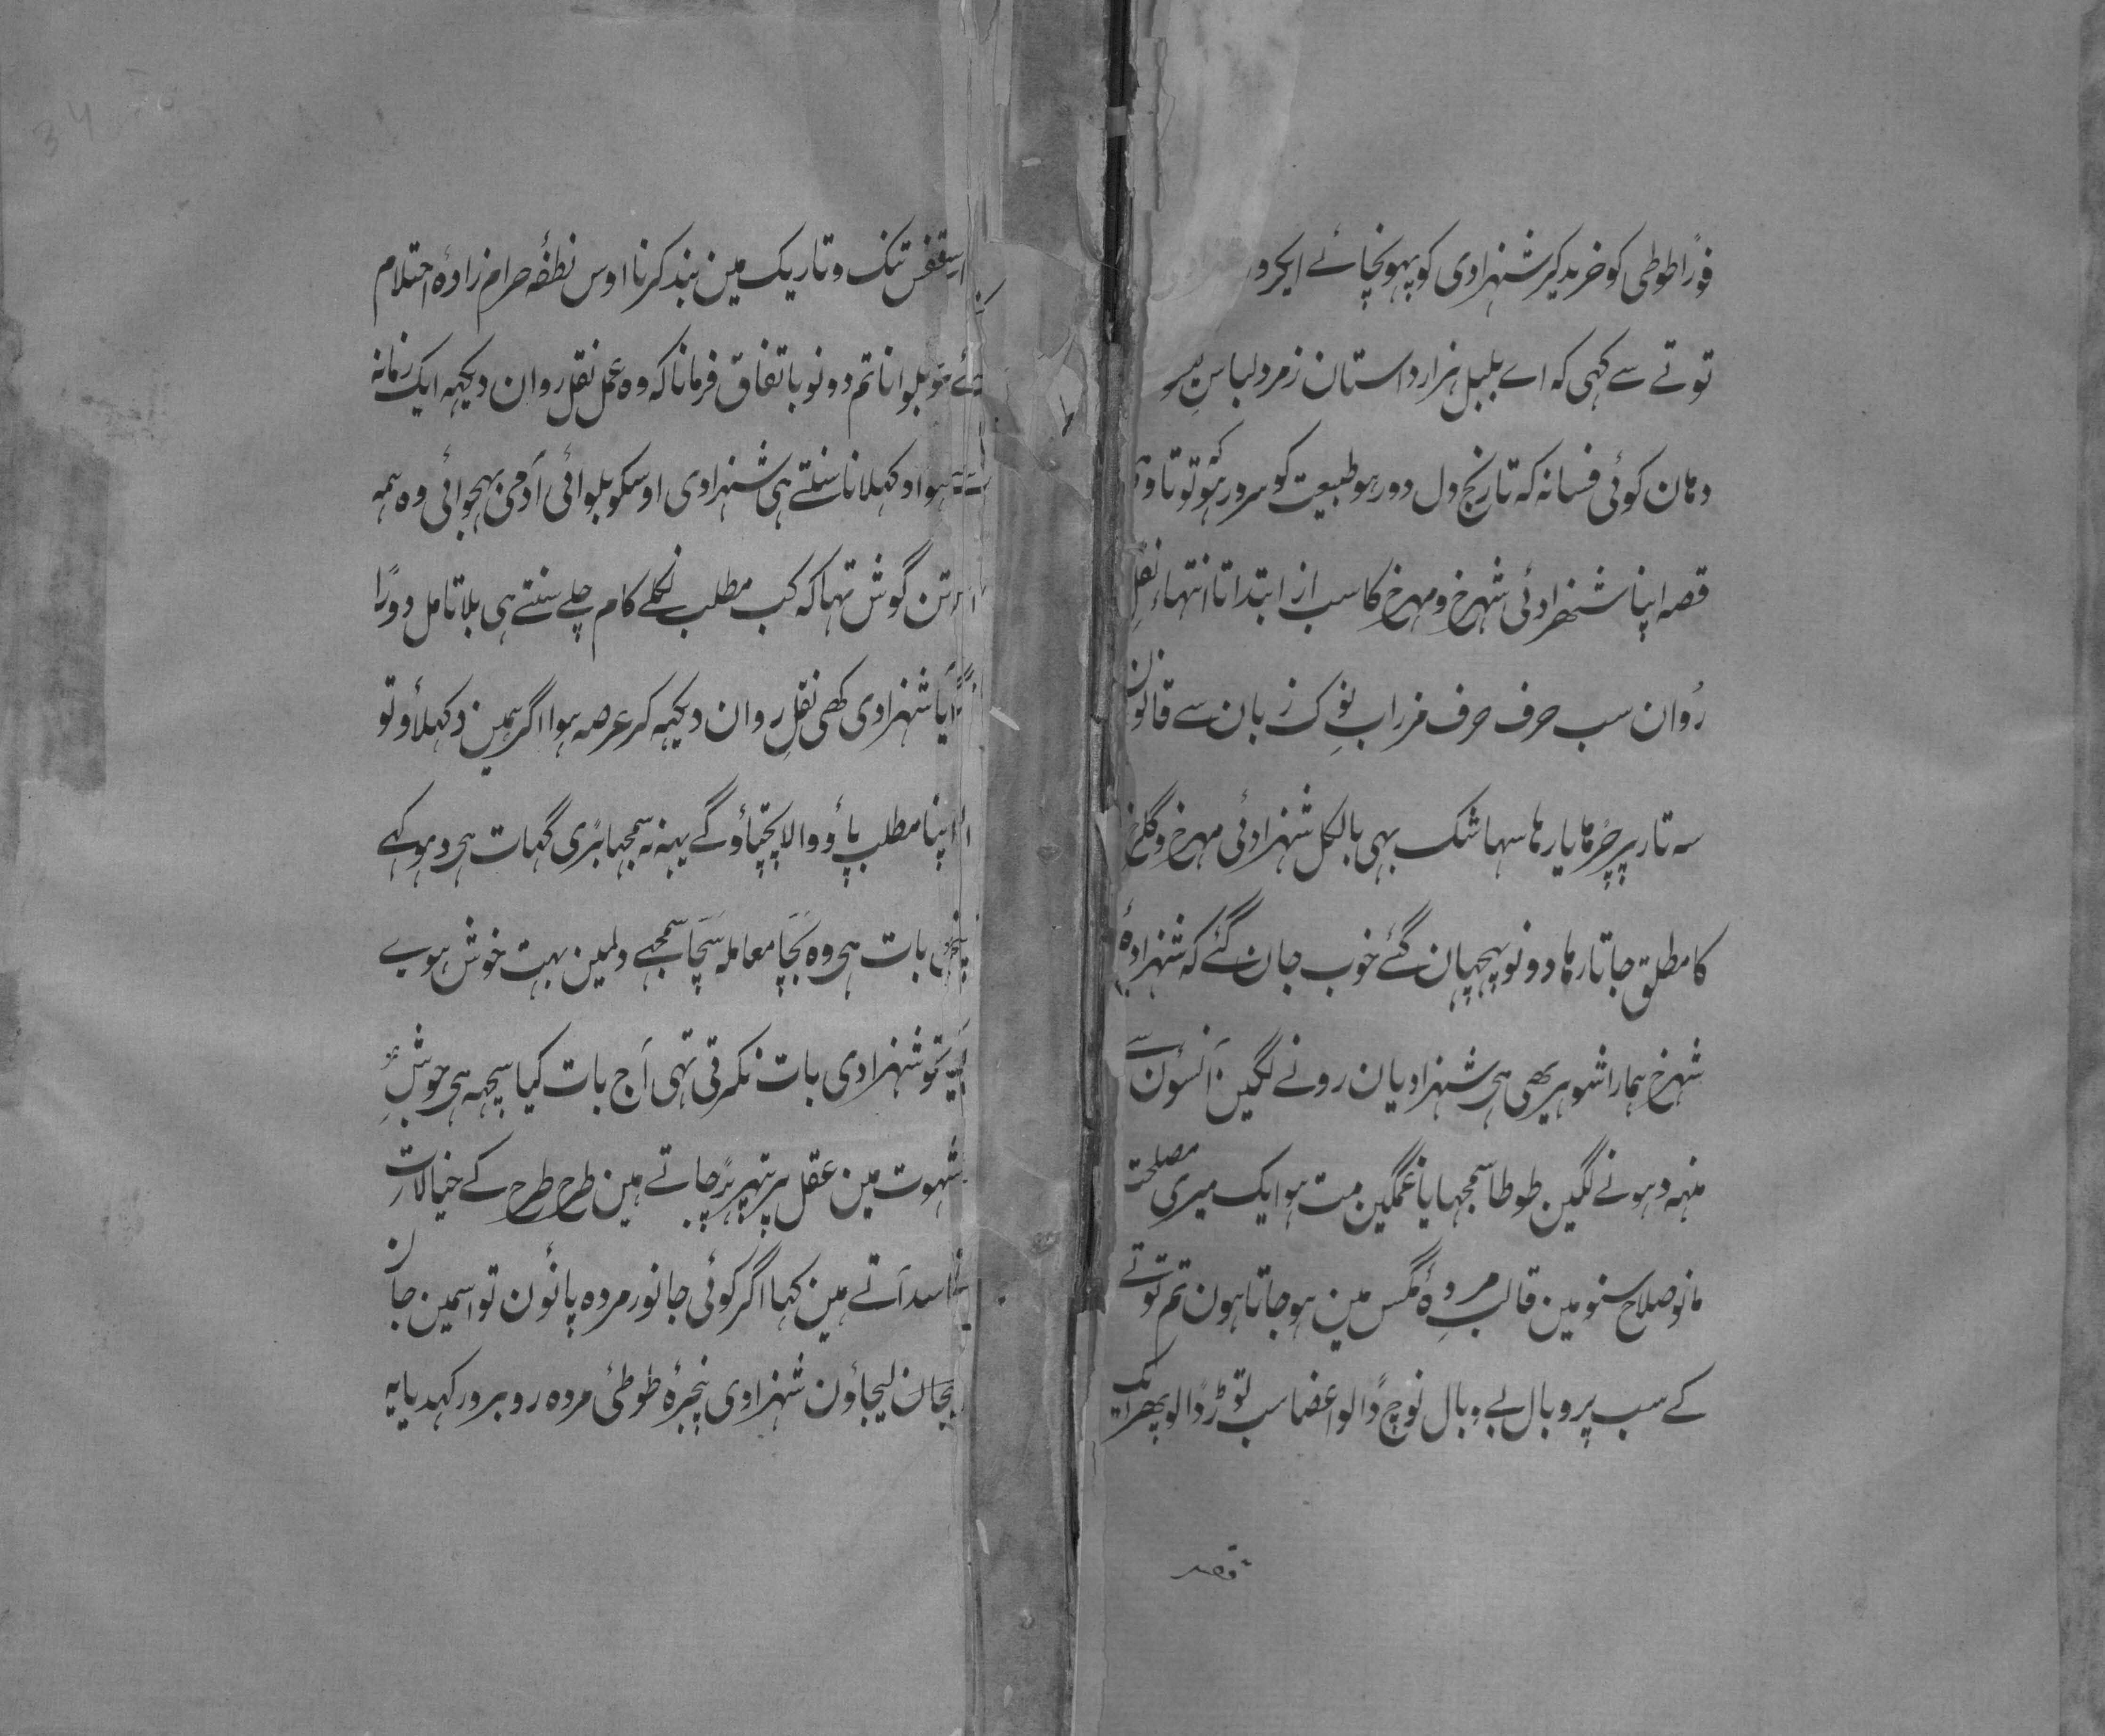 فورًا طوطی کو خرید کر شنہزادی کو پہونچائے ایکرو
توتے سے کہی کہ اے بلبل ہزار داستان زمرد لباس
دہان کوئی فسانہ کہ تا رنج دل دور ہو طبیعت کو سرور ہو توتا
قصہ اپنا شنھزادئی شہرخ و مہرخ کا سب از ابتدا تا انتہاء نقلِ
رُوان سب حرف حرف مزرابِ نوک زبان سے قانون
سہ تار پر چڑہایا رہا سہا شک بہی بالکل شنہزادئی مہرخ و گلرخ
کا مطلق جاتا رہا دونو پہچپان گئے خوب جان گئے کہ شنہزادہٴ
شہرخ ہمارا شوہر یھی ہی شنہزادیان رونے لگین آنسون سے
منہہ دہونے لگین طوطا سمجہایا غمگین مت ہو ایک میری مصلحت
مانو صلاح سنو مین قالب مردہٴ مگس مین ہو جاتا ہون تم توتے
کے سب پر و بال بے و بال نوچ ڈالو اعضا سب توڑ ڈالو پھر ایک
قصہ
قفس تنک و تاریک مین بند کرنا اوس نطفہٴ حرام زادہٴ احتلام
بلوانا تم دونو باتفاق فرمانا کہ وہ عمل نقل روان دیکہہ ایک زمانہ
ہوا دکہلانا سنتے ہی شنہزادی اوسکو بلوائی آدمی بہجوائی وہ ہمہ
تن گوش تہا کہ کب مطلب نکلے کام چلے سنتے ہی بلا تامل دوڑا
آیا شنہزادی کھی نقلِ روان دیکہہ کر عرصہ ہوا اگر ہمین دکہلاؤ تو
اپنا مطلب پاؤ والا پچتاؤ گے یہہ نہ سمجہا بڑی گہات ہی دہوکہے
بات ہی وہ بچا معاملہ سچا سمجہے دلمین بہت خوش ہوے
شنہزادی بات نکرتی تہی آج بات کیا سیچہہ ہی جوشِ
شہوت مین عقل پر پتہر پڑجاتے ہین طرح طرح کے خیالات
آتے ہین کہا اگر کوئی جانور مردہ پائون تو اسمین جان
لیجاؤن شنہزادی پنجرہٴ طوطئ مردہ روبرو رکہدیا یہ